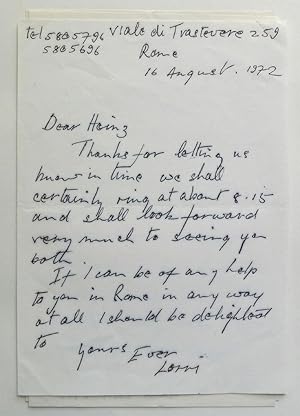 tel 5805796 Viale di Trastevere 259
5805696
Rome
16 August. 1972
Dear Heinz
Thanks for letting us
know in time we shall
certainly ring at about 8.15
and shall look forward
very much to seeing you
both.
If I can be of any help
to you in Rome in any way
at all I should be delighted
to
Yours Ever